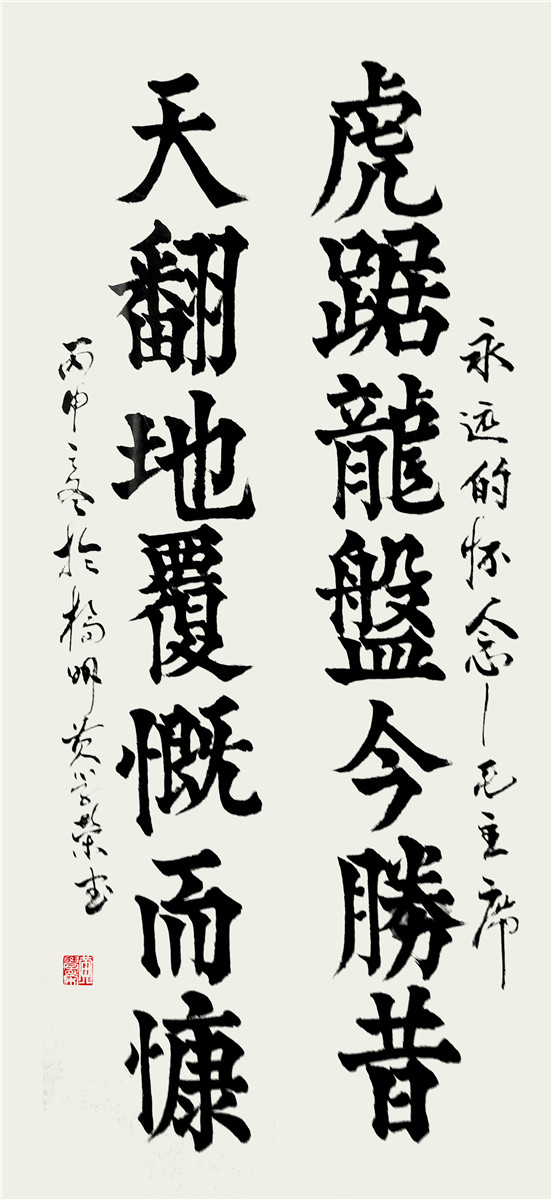 永远的怀念—毛主席
虎踞龍盤今勝昔
天翻地覆慨而慷
丙申之冬於橋明黄学榮书